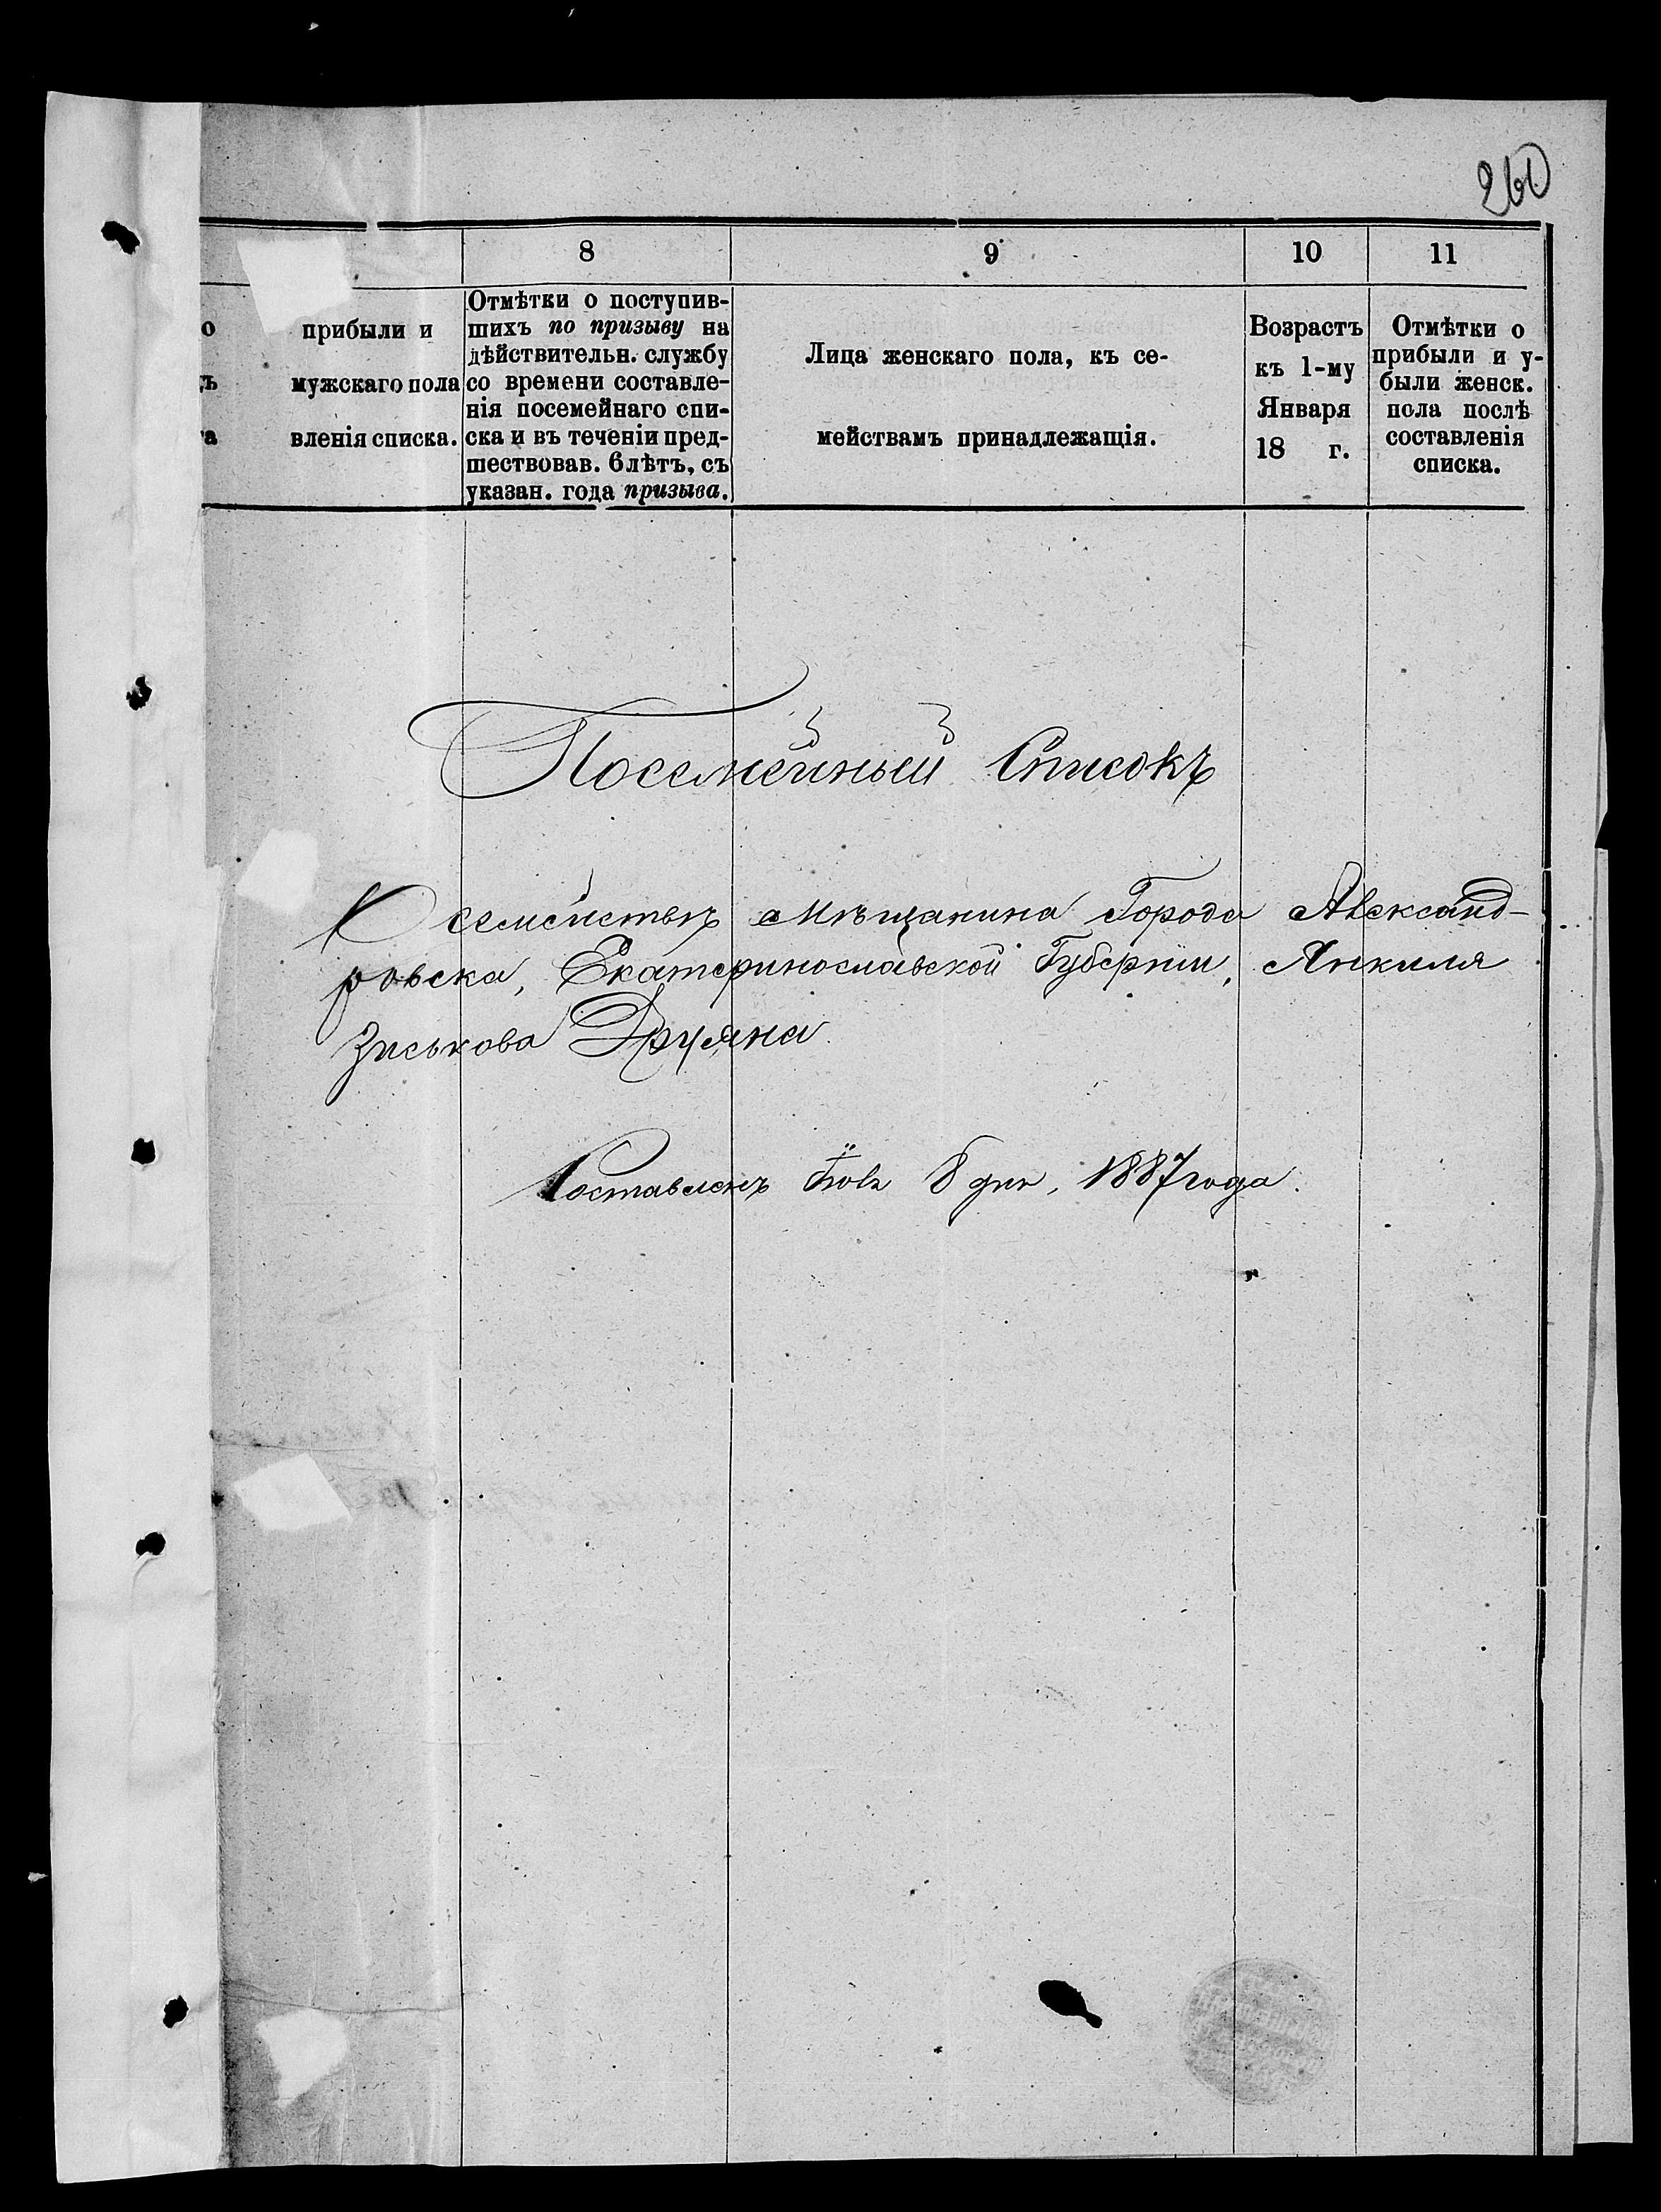 260
8 9 10 11
Отмѣтки о поступив-
шихъ по призыву на
дѣйствительн. службу
со времени составле-
нія посемейнаго спи-
ска и въ теченіи пред-
шествовав. 6 лѣтъ, съ
указан. года призыва.
о прибыли и
ъ мужскаго пола
а вленія списка.
Лица женскаго пола, къ се-
мействамъ принадлежащія.
Возрастъ
къ 1-му
Января
18 г.
Отмѣтки о
прибыли и у-
были женск.
пола послѣ
составленія
списка.
Посемейный Списокъ
О семействѣ мѣщанина Города Александ-
ровска, Екатеринославской Губерніи, Янкиля
Зиськова Друяна.
Составленъ 8 дня, 1887 года.